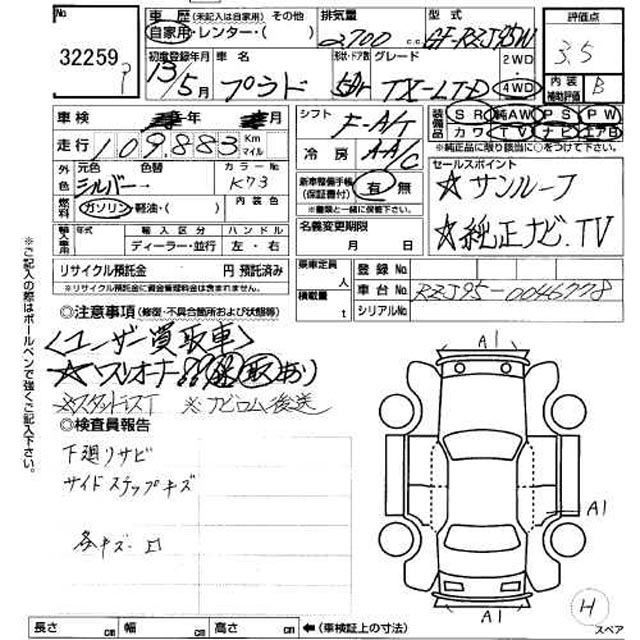 No.
32259
車歴 (未記入は自家用) その他
自家用・レンター・( )
排気量
2700 c.c.
型式
GF-RZJ95W
評価点
3.5
初度登録年月
13/5月
車名
プラド
形状・ドア数
5Dr
グレード
TX-LTD
2WD
4WD
内装
補助評価
B
車検 年 月
シフト
F-A/T
装備品
SR 純AW PS PW
カワ TV ナビ エアB
※純正品に限り該当に○をつけて下さい。
走行
109,883
Km
マイル
冷房
AA/C
外色
元色 色替
シルバー
カラーNo.
K73
新車整備手帳
(保証書付)
有 無
※書類と一緒に保管下さい。
セールスポイント
☆サンルーフ
☆純正ナビ.TV
燃料
ガソリン・軽油・( )
内装色
名義変更期限
月 日
輸入車用
年式
輸入区分
ディーラー・並行
ハンドル
左・右
リサイクル預託金 円 預託済み
※リサイクル預託金に資金管理料金は含まれません。
乗車定員
人
積載量
t
登録No.
車台No. RZJ95-0046778
シリアルNo.
※ご記入の際はボールペンで強くご記入下さい。
◎注意事項 (修復・不具合箇所および状態等)
<ユーザー買取車>
☆ワンオーナー!!
※スタットレスT ※ナビロム後送
◎検査員報告
下廻りサビ
サイドステップキズ
各キズ・凹
A1
A1
A1
H
スペア
長さ cm 幅 cm 高さ cm ←(車検証上の寸法)